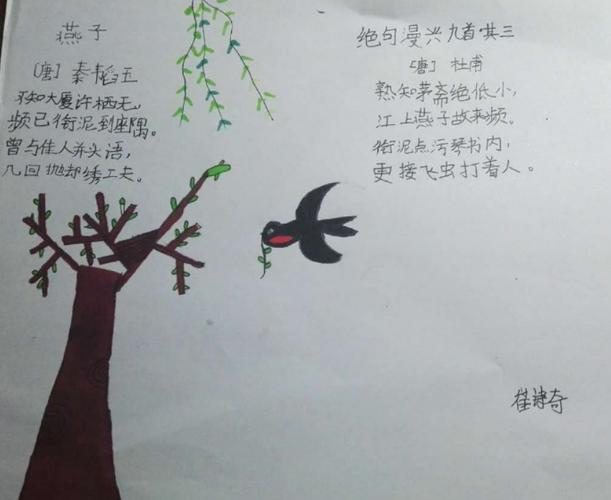 燕子
〔唐〕秦韬玉
不知大厦许栖无,
频已衔泥到座隅。
曾与佳人并头语,
几回抛却绣工夫。
绝句漫兴九首·其三
〔唐〕杜甫
熟知茅斋绝低小,
江上燕子故来频。
衔泥点污琴书内,
更接飞虫打着人。
崔诗奇